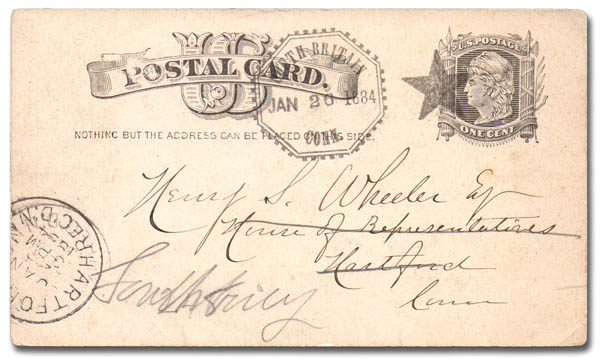 US
POSTAL CARD.
SOUTH BRITAIN
JAN 26 1884
CONN.
U.S. POSTAGE
ONE CENT
NOTHING BUT THE ADDRESS CAN BE PLACED ON THIS SIDE.
Henry S. Wheeler Esq
House of Representatives
Hartford
Conn
HARTFORD
REC'D.